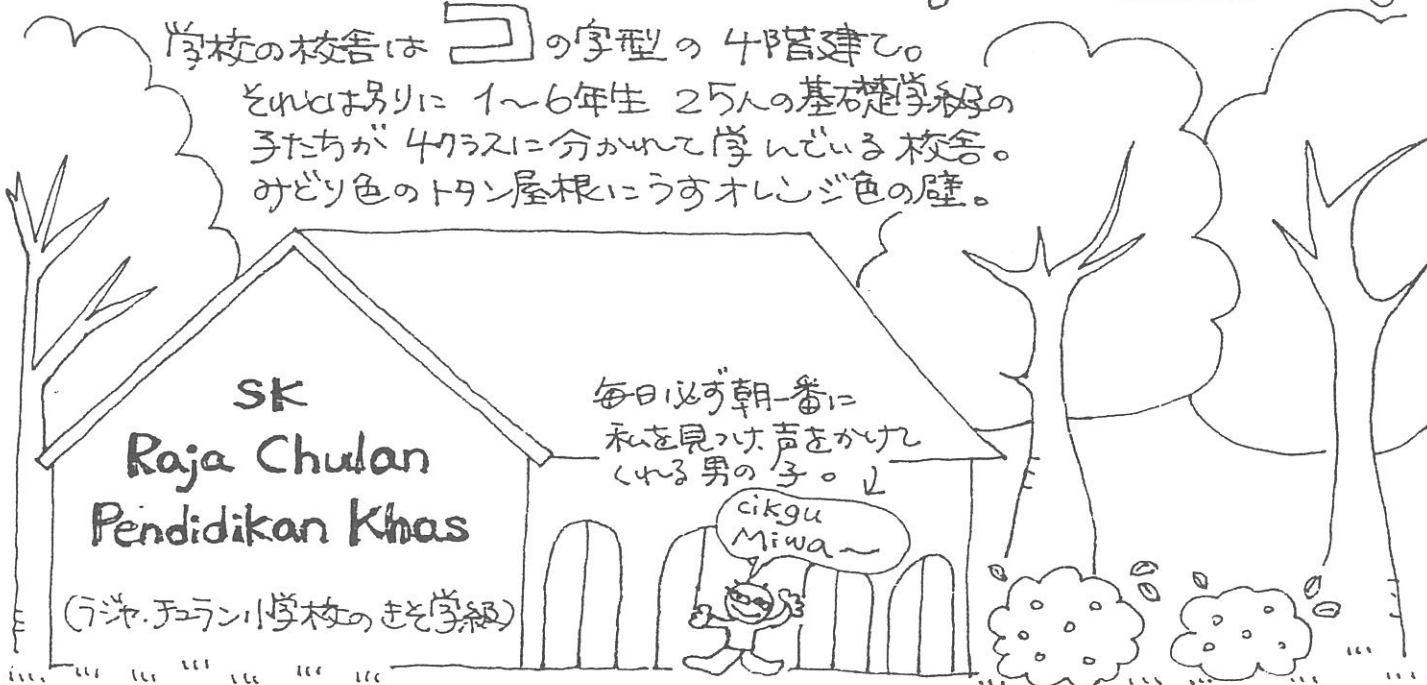 学校の校舎は コ の字型の 4階建て。
それとは別に 1～6年生 25人の基礎学級の
子たちが 4クラスに分かれて学んでいる校舎。
みどり色のトタン屋根にうすオレンジ色の壁。
SK
Raja Chulan
Pendidikan Khas
(ラジャ・チュラン小学校のきそ学級)
毎日必ず朝一番に
私を見つけ、声をかけて
くれる男の子。↓
cikgu
Miwa～